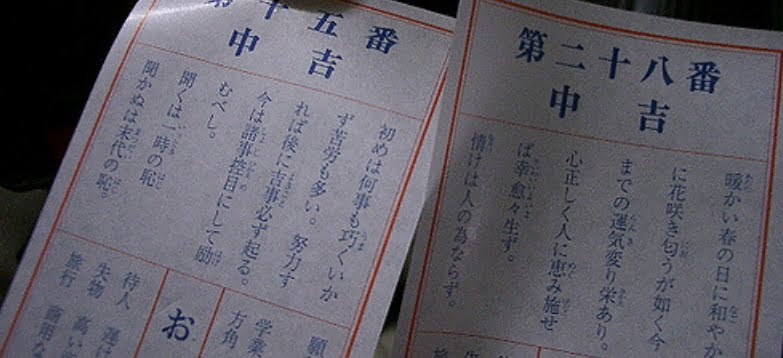 第十五番
中吉
初めは何事も巧くいか
ず苦労も多い。努力す
れば後に吉事必ず起る。
今は諸事控目にして励
むべし。
聞くは一時の恥
聞かぬは末代の恥。
学業
方角
お
待人 遅
失物 高い
旅行
第二十八番
中吉
暖かい春の日に和やか
に花咲き匂うが如く今
までの運気変り栄あり。
心正しく人に恵み施せ
ば幸愈々生ず。
情けは人の為ならず。